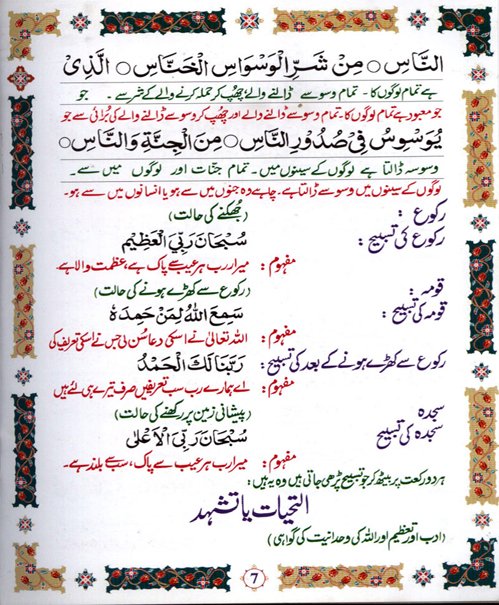 النَّاسِ ○ مِنْ شَرِّ الْوَسْوَاسِ الْخَنَّاسِ ○ الَّذِیْ
ہے تمام لوگوں کا۔ تمام وسوسے ڈالنے والے چھپ کر حملہ کرنے والے کے شر سے۔ جو
جو معبود ہے تمام لوگوں کا۔ تمام وسوسے ڈالنے والے اور چھپ کر وسوسے ڈالنے والے کی بُرائی سے جو
یُوَسْوِسُ فِیْ صُدُوْرِ النَّاسِ ○ مِنَ الْجِنَّةِ وَالنَّاسِ ○
وسوسہ ڈالتا ہے لوگوں کے سینوں میں۔ تمام جنّات اور لوگوں میں سے۔
لوگوں کے سینوں میں وسوسے ڈالتا ہے۔ چاہے وہ جنوں میں سے ہو یا انسانوں میں سے ہو۔
رکوع : (جھکنے کی حالت)
رکوع کی تسبیح : سُبْحَانَ رَبِّیَ الْعَظِیْمِ
مفہوم : میرا رب ہر عیب سے پاک ہے، عظمت والا ہے۔
قومہ : (رکوع سے کھڑے ہونے کی حالت)
قومہ کی تسبیح : سَمِعَ اللهُ لِمَنْ حَمِدَهٗ
مفہوم : اللہ تعالیٰ نے اسکی دعا سُن لی جس نے اسکی تعریف کی
رکوع سے کھڑے ہونے کے بعد کی تسبیح : رَبَّنَا لَكَ الْحَمْدُ
مفہوم : اے ہمارے رب سب تعریفیں صرف تیرے ہی لئے ہیں
سجدہ (پیشانی زمین پر رکھنے کی حالت)
سجدہ کی تسبیح سُبْحَانَ رَبِّیَ الْاَعْلٰی
مفہوم : میرا رب ہر عیب سے پاک، سب سے بلند ہے۔
ہر دو رکعت پر بیٹھ کر جو تسبیح پڑھی جاتی ہیں وہ یہ ہیں :
التحیات یا تشہد
(ادب اور تعظیم اور اللہ کی وحدانیت کی گواہی)
7